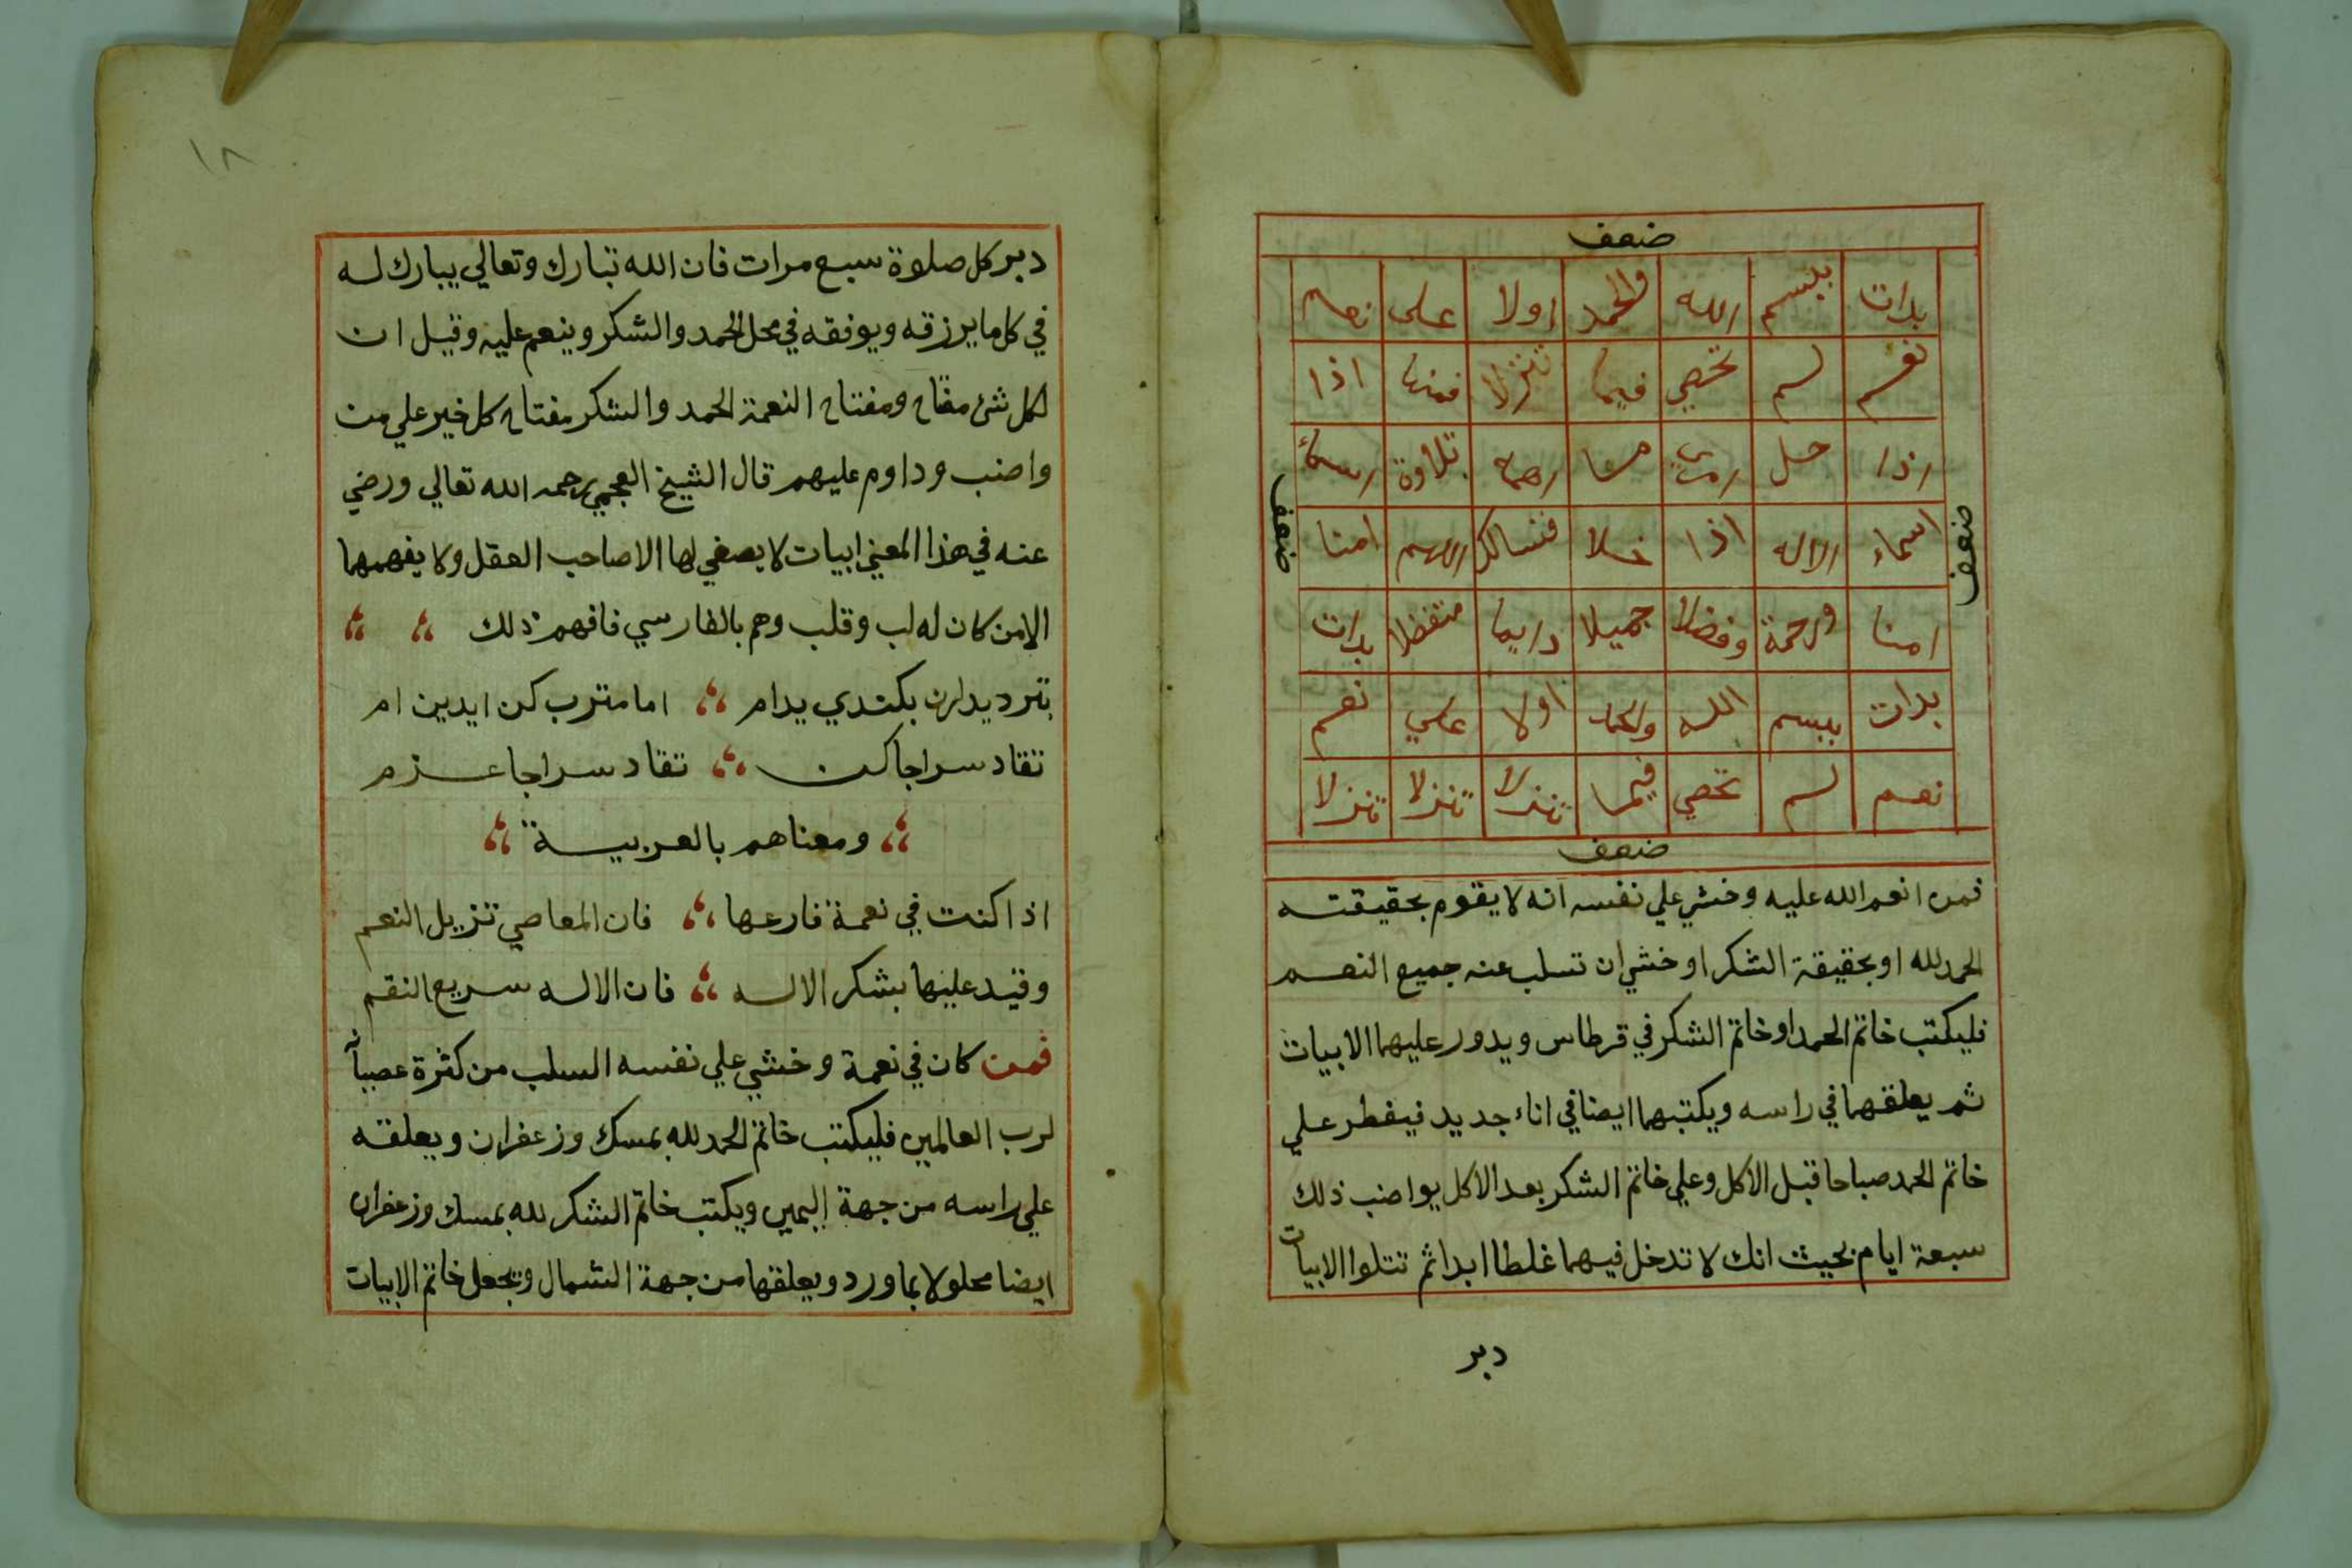 ضعف
بدات ببسم الله والحمد اولا على نعم
نعم لم تحصي فيما تنزلا فمنها اذا
اذا حل تلاوة
ضعف
ضعف
اسماء الاله اذا فنسالك اللهم امنا
امنا ورحمة وفضلا جميلا دايما متفضلا بدات
بدات ببسم الله والحمد اولا علي نعم
نعم لم تحصي فيما تنزلا تنزلا تنزلا
ضعف
فمن انعم الله عليه وخشي علي نفسه انه لا يقوم بحقيقته
الحمد لله او بحقيقة الشكر او خشي ان تسلب عنه جميع النعم
فليكتب خاتم الحمد او خاتم الشكر في قرطاس ويدور عليهما الابيات
ثم يعلقهما في راسه ويكتبهما ايضا في اناء جديد فيفطر علي
خاتم الحمد صباحا قبل الاكل وعلي خاتم الشكر بعد الاكل يواضب ذلك
سبعة ايام بحيث انك لا تدخل فيهما غلطا ابدا ثم تتلوا الابيات
دبر
١٨
دبر كل صلوة سبع مرات فان الله تبارك وتعالي يبارك له
في كل ما يرزقه ويوفقه في محل الحمد والشكر وينعم عليه وقيل ان
لكل شئ مفتاح ومفتاح النعمة الحمد والشكر مفتاح كل خير علي من
واضب وداوم عليهم قال الشيخ العجمي رحمه الله تعالي ورضي
عنه في هذا المعني ابيات لا يصغي لها الا صاحب العقل ولا يفهمها
الا من كان له لب وقلب وهم بالفارسي فافهم ذلك
بترديدلرن بكندي يدام اما مترب كن ايدين ام
تقاد سراجا كن تقاد سراجا عزم
ومعناهم بالعربية
اذا كنت في نعمة فارعها فان المعاصي تزيل النعم
وقيد عليها بشكر الاله فان الاله سريع النقم
فمن كان في نعمة وخشي علي نفسه السلب من كثرة عصيانه
لرب العالمين فليكتب خاتم الحمد لله بمسك وزعفران ويعلقه
علي راسه من جهة اليمين ويكتب خاتم الشكر لله بمسك وزعفران
ايضا محلولا بماورد ويعلقها من جهة الشمال وتجعل خاتم الابيات